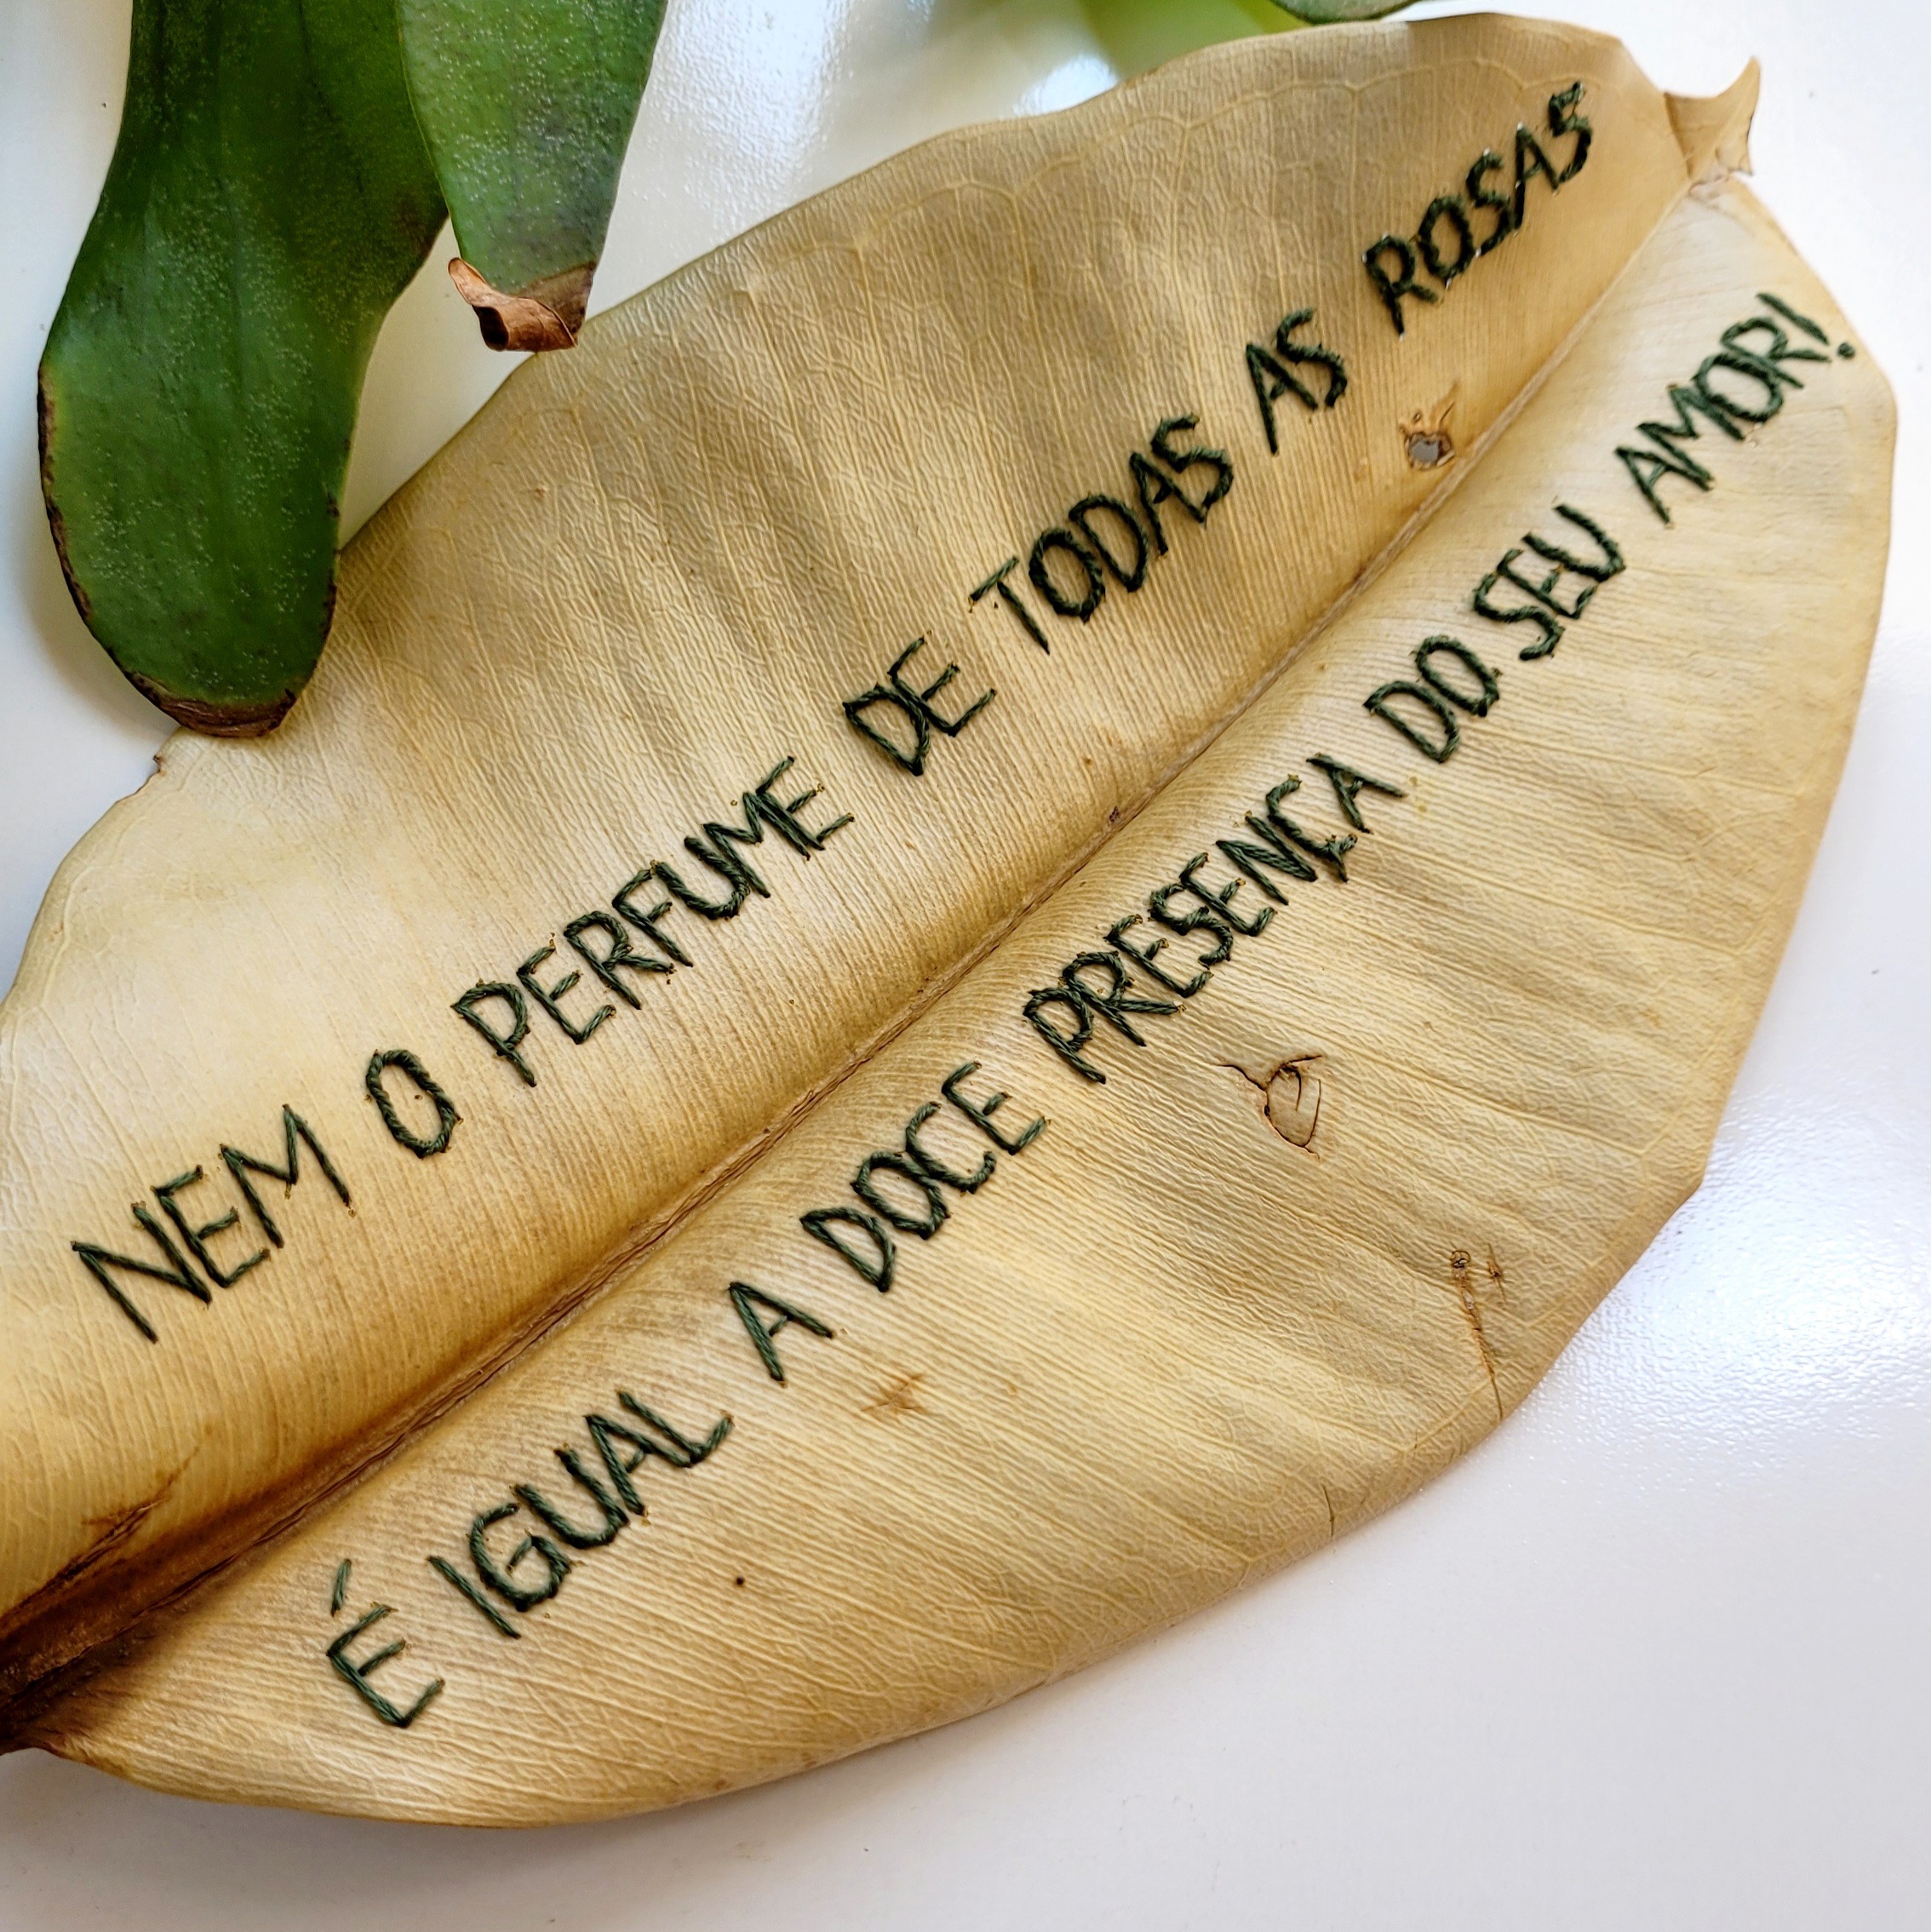 NEM O PERFUME DE TODAS AS ROSAS
É IGUAL A DOCE PRESENÇA DO SEU AMOR!